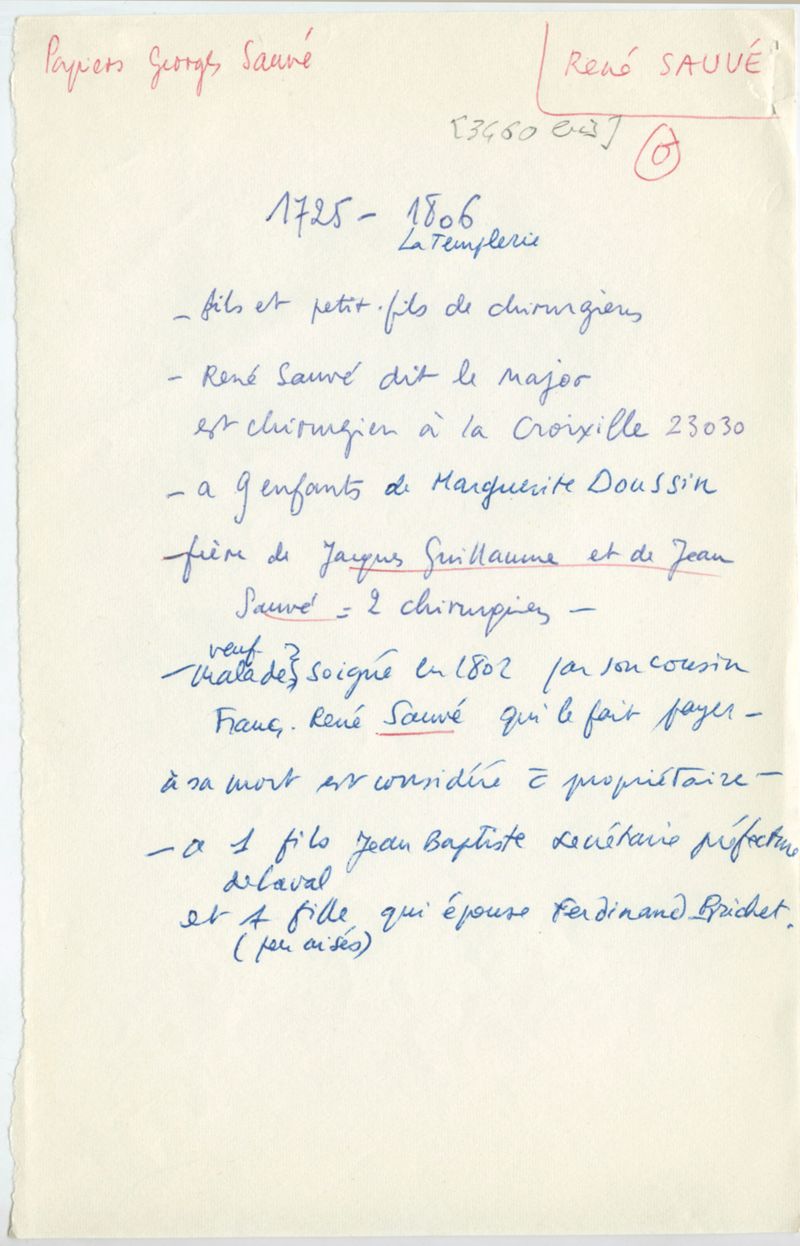 Papiers Georges Sauvé
René SAUVÉ
[3460 bis]
6
1725 - 1806
La Templerie
- fils et petit-fils de chirurgiens
- René Sauvé dit le Major
est chirurgien à la Croixille 23030
- a 9 enfants de Marguerite Doussin
- frère de Jacques Guillaume et de Jean
Sauvé = 2 chirurgiens -
veuf
- malade, soigné en 1802 par son cousin
Franç. René Sauvé qui le fait payer -
à sa mort est considéré c̄ propriétaire -
- a 1 fils Jean Baptiste secrétaire préfecture
de Laval
et 1 fille qui épouse Ferdinand Brichet.
(peu aisés)